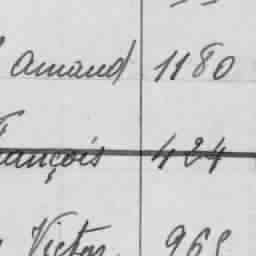 Amand 1180
François 424
Victor 965